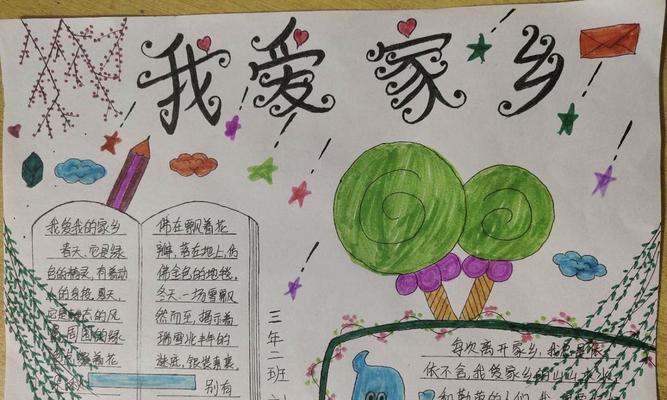 我爱家乡
我爱我的家乡
春天,它是绿
色的精灵,有着动
的身挽,夏天,
它是的风
周围的绿
着花
佛在飘着花
瓣,落在地上,仿
佛金色的地毯,
冬天,一场雪飘
然而至,揭示着
瑞雪兆丰年的
谜底,银装素裹
别有
三年二班
每次离开家乡,我
依不舍,我爱家乡的山山水水
和勤劳的人们,我